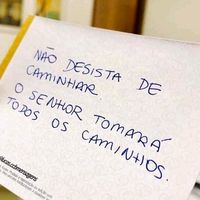 NÃO DESISTA DE
CAMINHAR.
O SENHOR TOMARÁ
TODOS OS CAMINHOS.